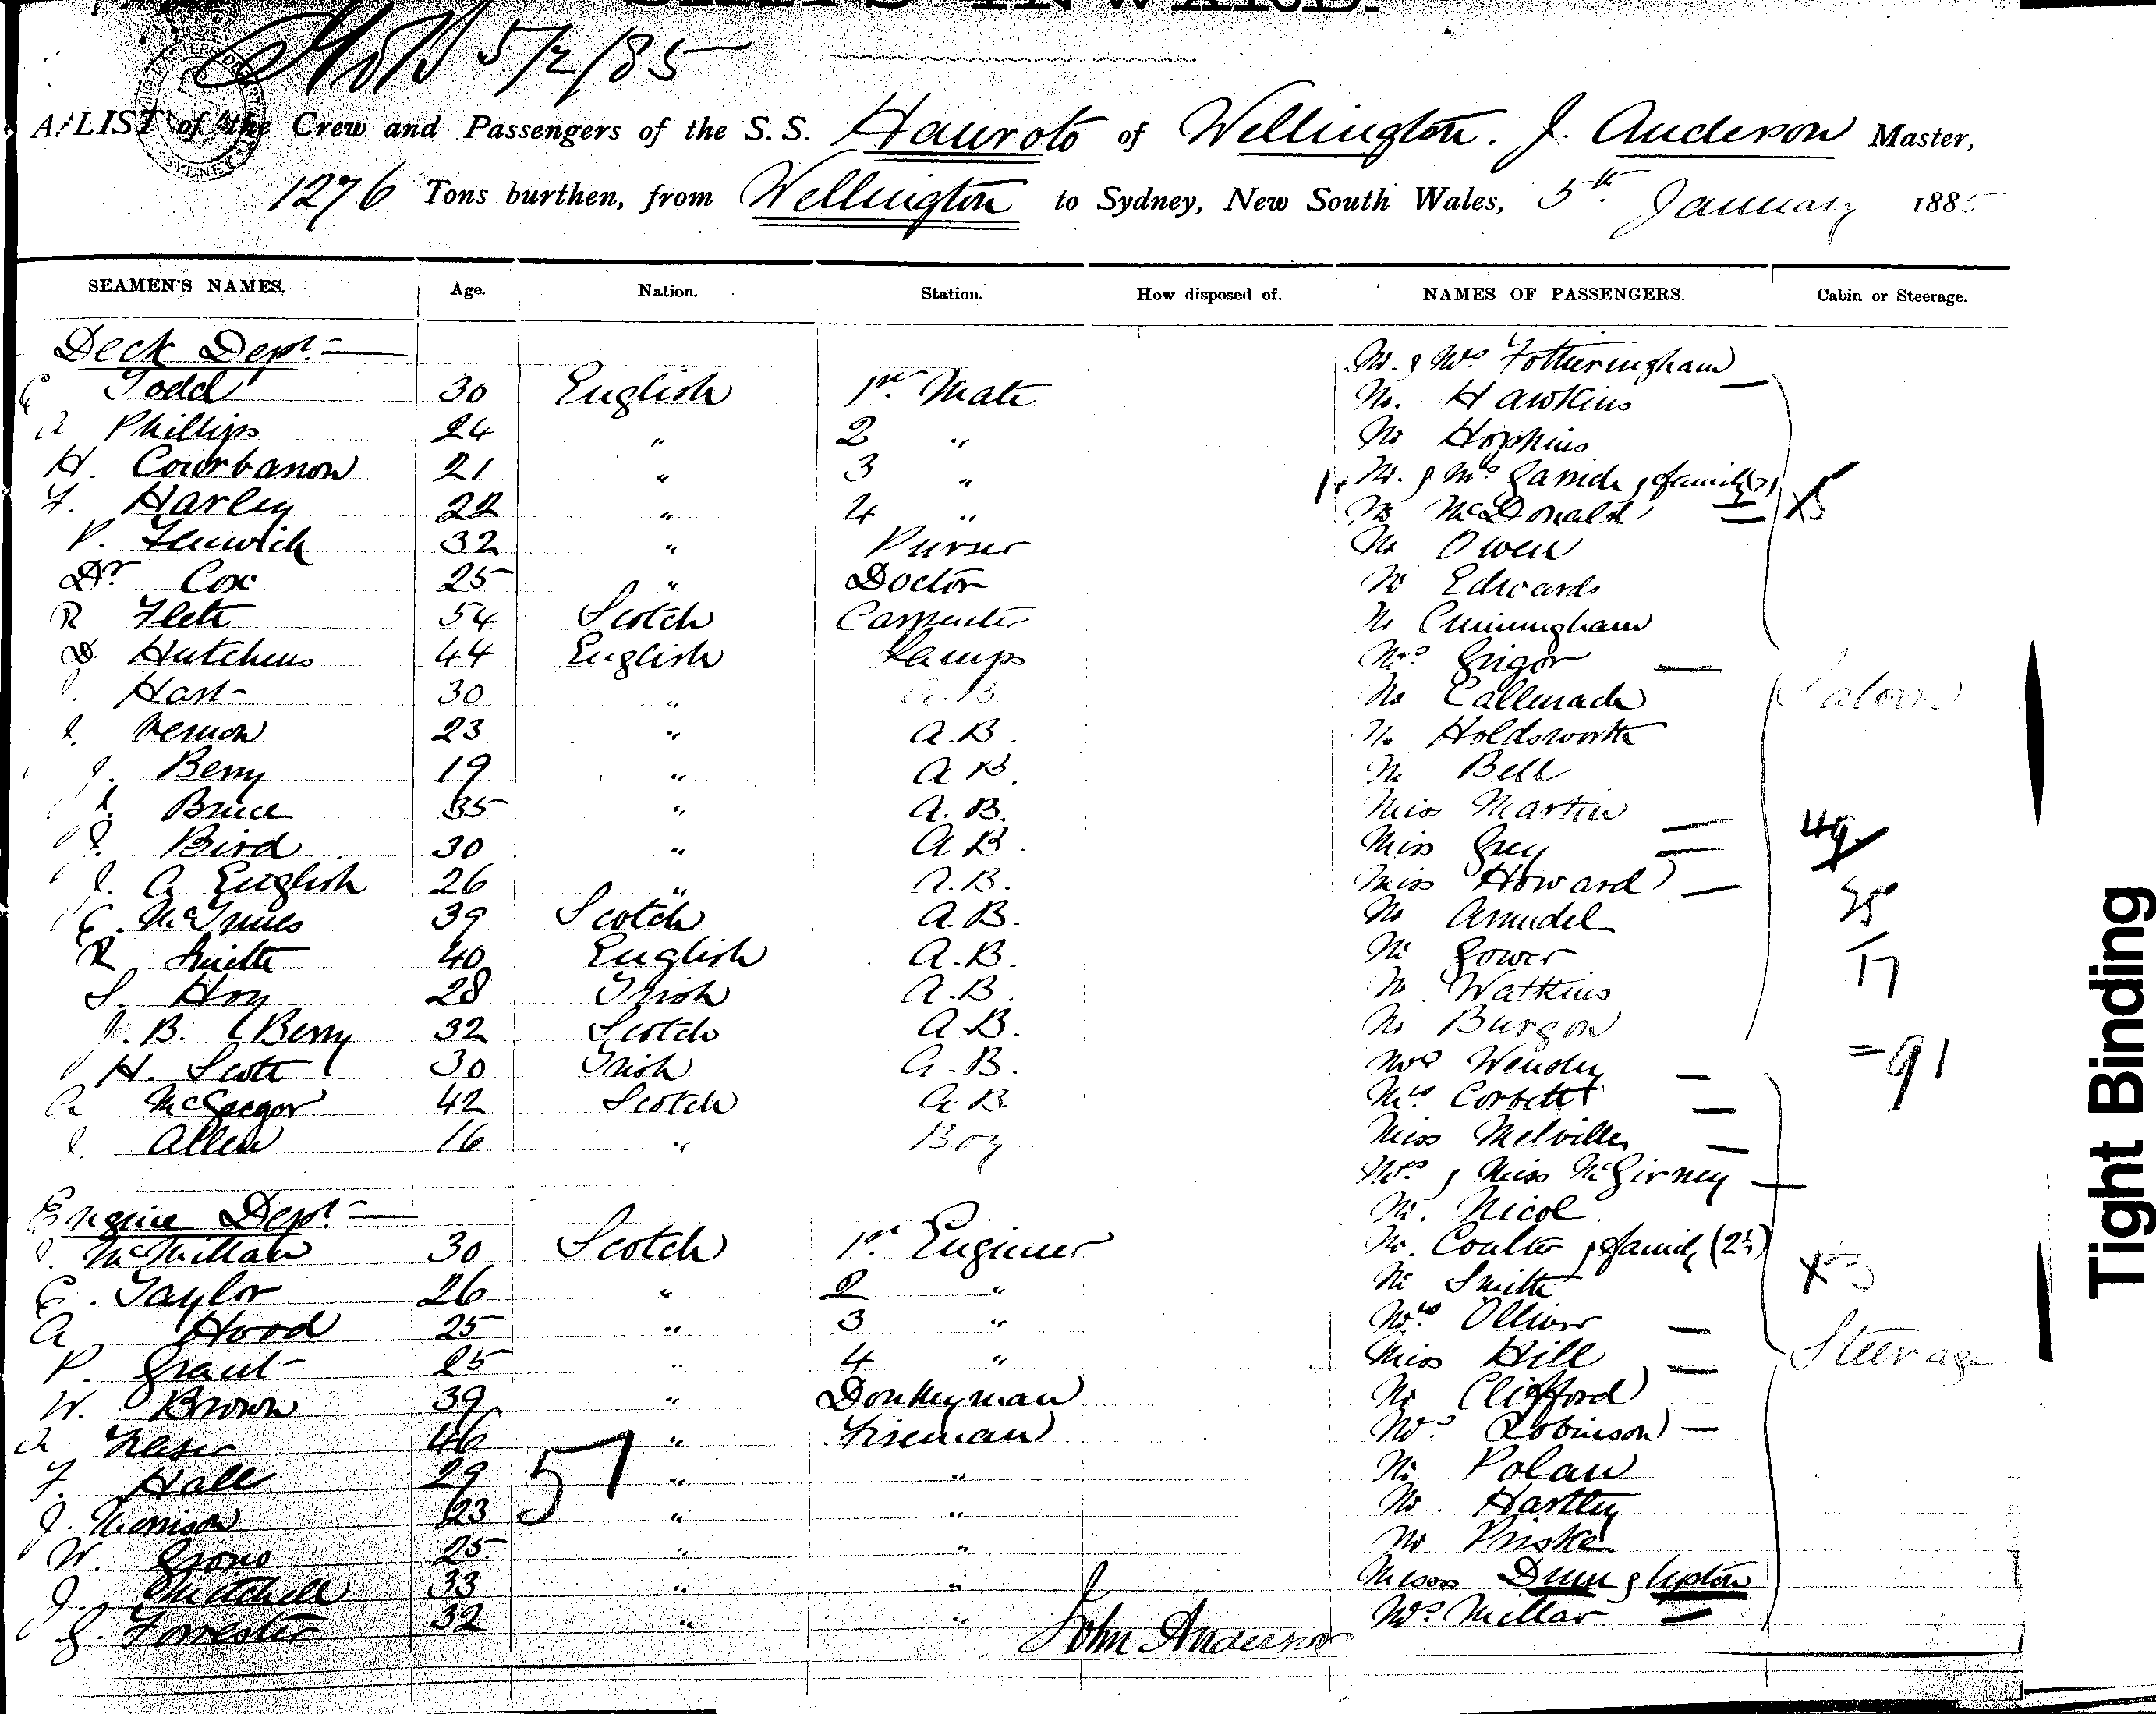 SHIPS INWARD.
5/2/85
A LIST of the Crew and Passengers of the S.S. Hauroto of Wellington. J. Anderson Master,
1276 Tons burthen, from Wellington to Sydney, New South Wales, 5th January 1885
SEAMEN'S NAMES. Age. Nation. Station. How disposed of. NAMES OF PASSENGERS. Cabin or Steerage.
Deck Dept. Mr. & Mrs Fotheringham
Todd 30 English 1st Mate Mr. Hawkins
Phillips 24 " 2 " Mr Hopkins
H. 21 " 3 " Mr. & Mrs & family
F. Harley 22 " 4 " Mr McDonald
P. Fenwick 32 " Purser Mr Owen
Dr Cox 25 " Doctor Mr Edwards
R 54 Scotch Carpenter Mr Cunningham
Hutchens 44 English Lamps Mrs Grigor
Hart 30 " A.B. Mr Callenach Saloon
Vernon 23 " A.B. Mr Holdsworth
J. Berry 19 " A.B. Mr Bell
Bruce 35 " A.B. Miss Martin
Bird 30 " A.B. Miss Grey 49
J. A English 26 " A.B. Miss Howard
E. McInnes 39 Scotch A.B. Mr Arundel 25
R Smith 40 English A.B. Mr Gower
S. Hoy 28 Irish A.B. Mr Watkins 17
J. B. Berry 32 Scotch A.B. Mr Burgon
H. Scott 30 Irish A.B. Mrs =91
A McGregor 42 Scotch A.B. Mrs Corbett
Allen 16 " Boy Miss Melville
Mrs & Miss McGirney
Engine Dept. Mr. Nicol
McMillan 30 Scotch 1st Engineer Mr. Coulter & family (2)
E. Taylor 26 " 2 " Mr Smith
A Hood 25 " 3 " Mrs Olliver
P. Grant 25 " 4 " Miss Hill Steerage
W. Brown 39 " Donkeyman Mr Clifford
A Fraser 46 " Fireman Mrs Robinson
F. Hall 29 57 " " Mr Polan
J. 23 " " Mr Hartley
W. 25 " " Mr Priske
J. Mitchell 33 " " Messrs Dunn & Upton
G. Forrester 32 " " Mrs Millar
John Anderson
Tight Binding